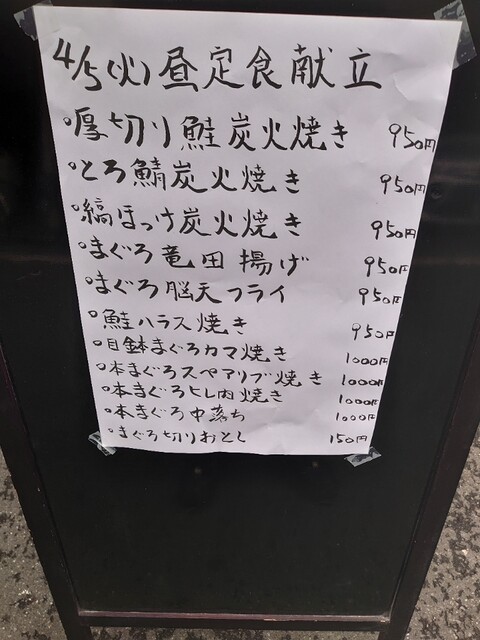 4/5(火)昼定食献立
°厚切り鮭炭火焼き 950円
°とろ鯖炭火焼き 950円
°縞ほっけ炭火焼き 950円
°まぐろ竜田揚げ 950円
°まぐろ脳天フライ 950円
°鮭ハラス焼き 950円
°目鉢まぐろカマ焼き 1000円
°本まぐろスペアリブ焼き 1000円
°本まぐろヒレ肉焼き 1000円
°本まぐろ中落ち 1000円
°まぐろ切りおとし 150円